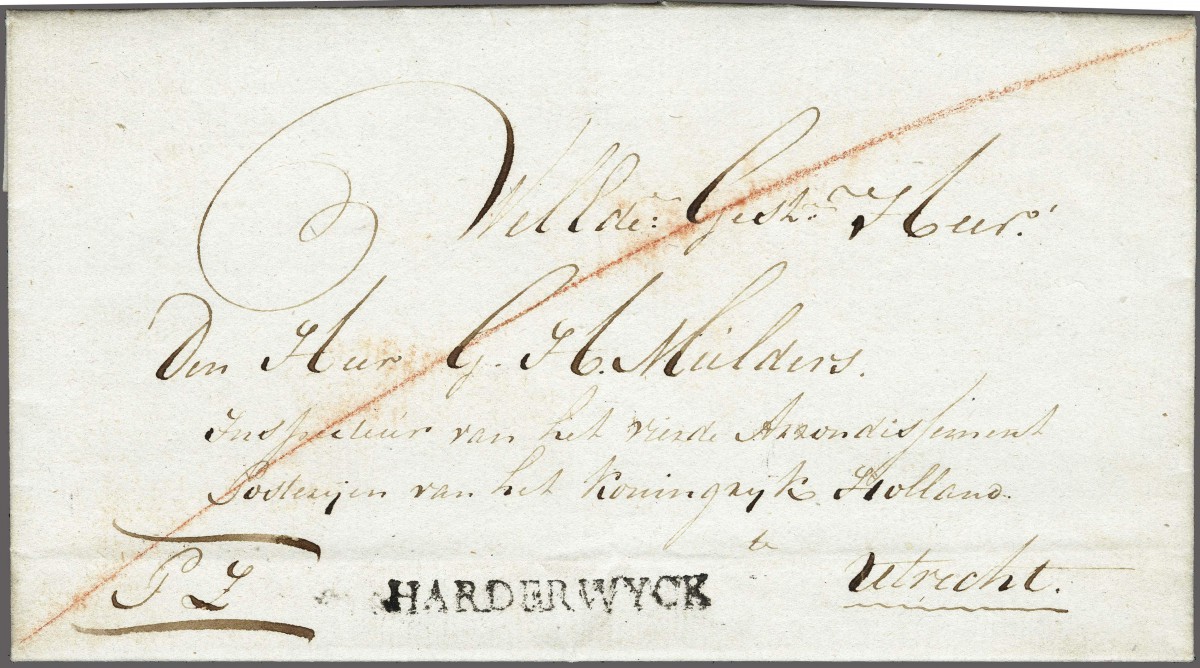 WelEde: Gestr. Heer.
Den Heer G. H. Mulders.
Inspecteur van het vierde Arrondissement
Posterijen van het Koningrijk Holland
te
Utrecht.
P Z
HARDERWYCK